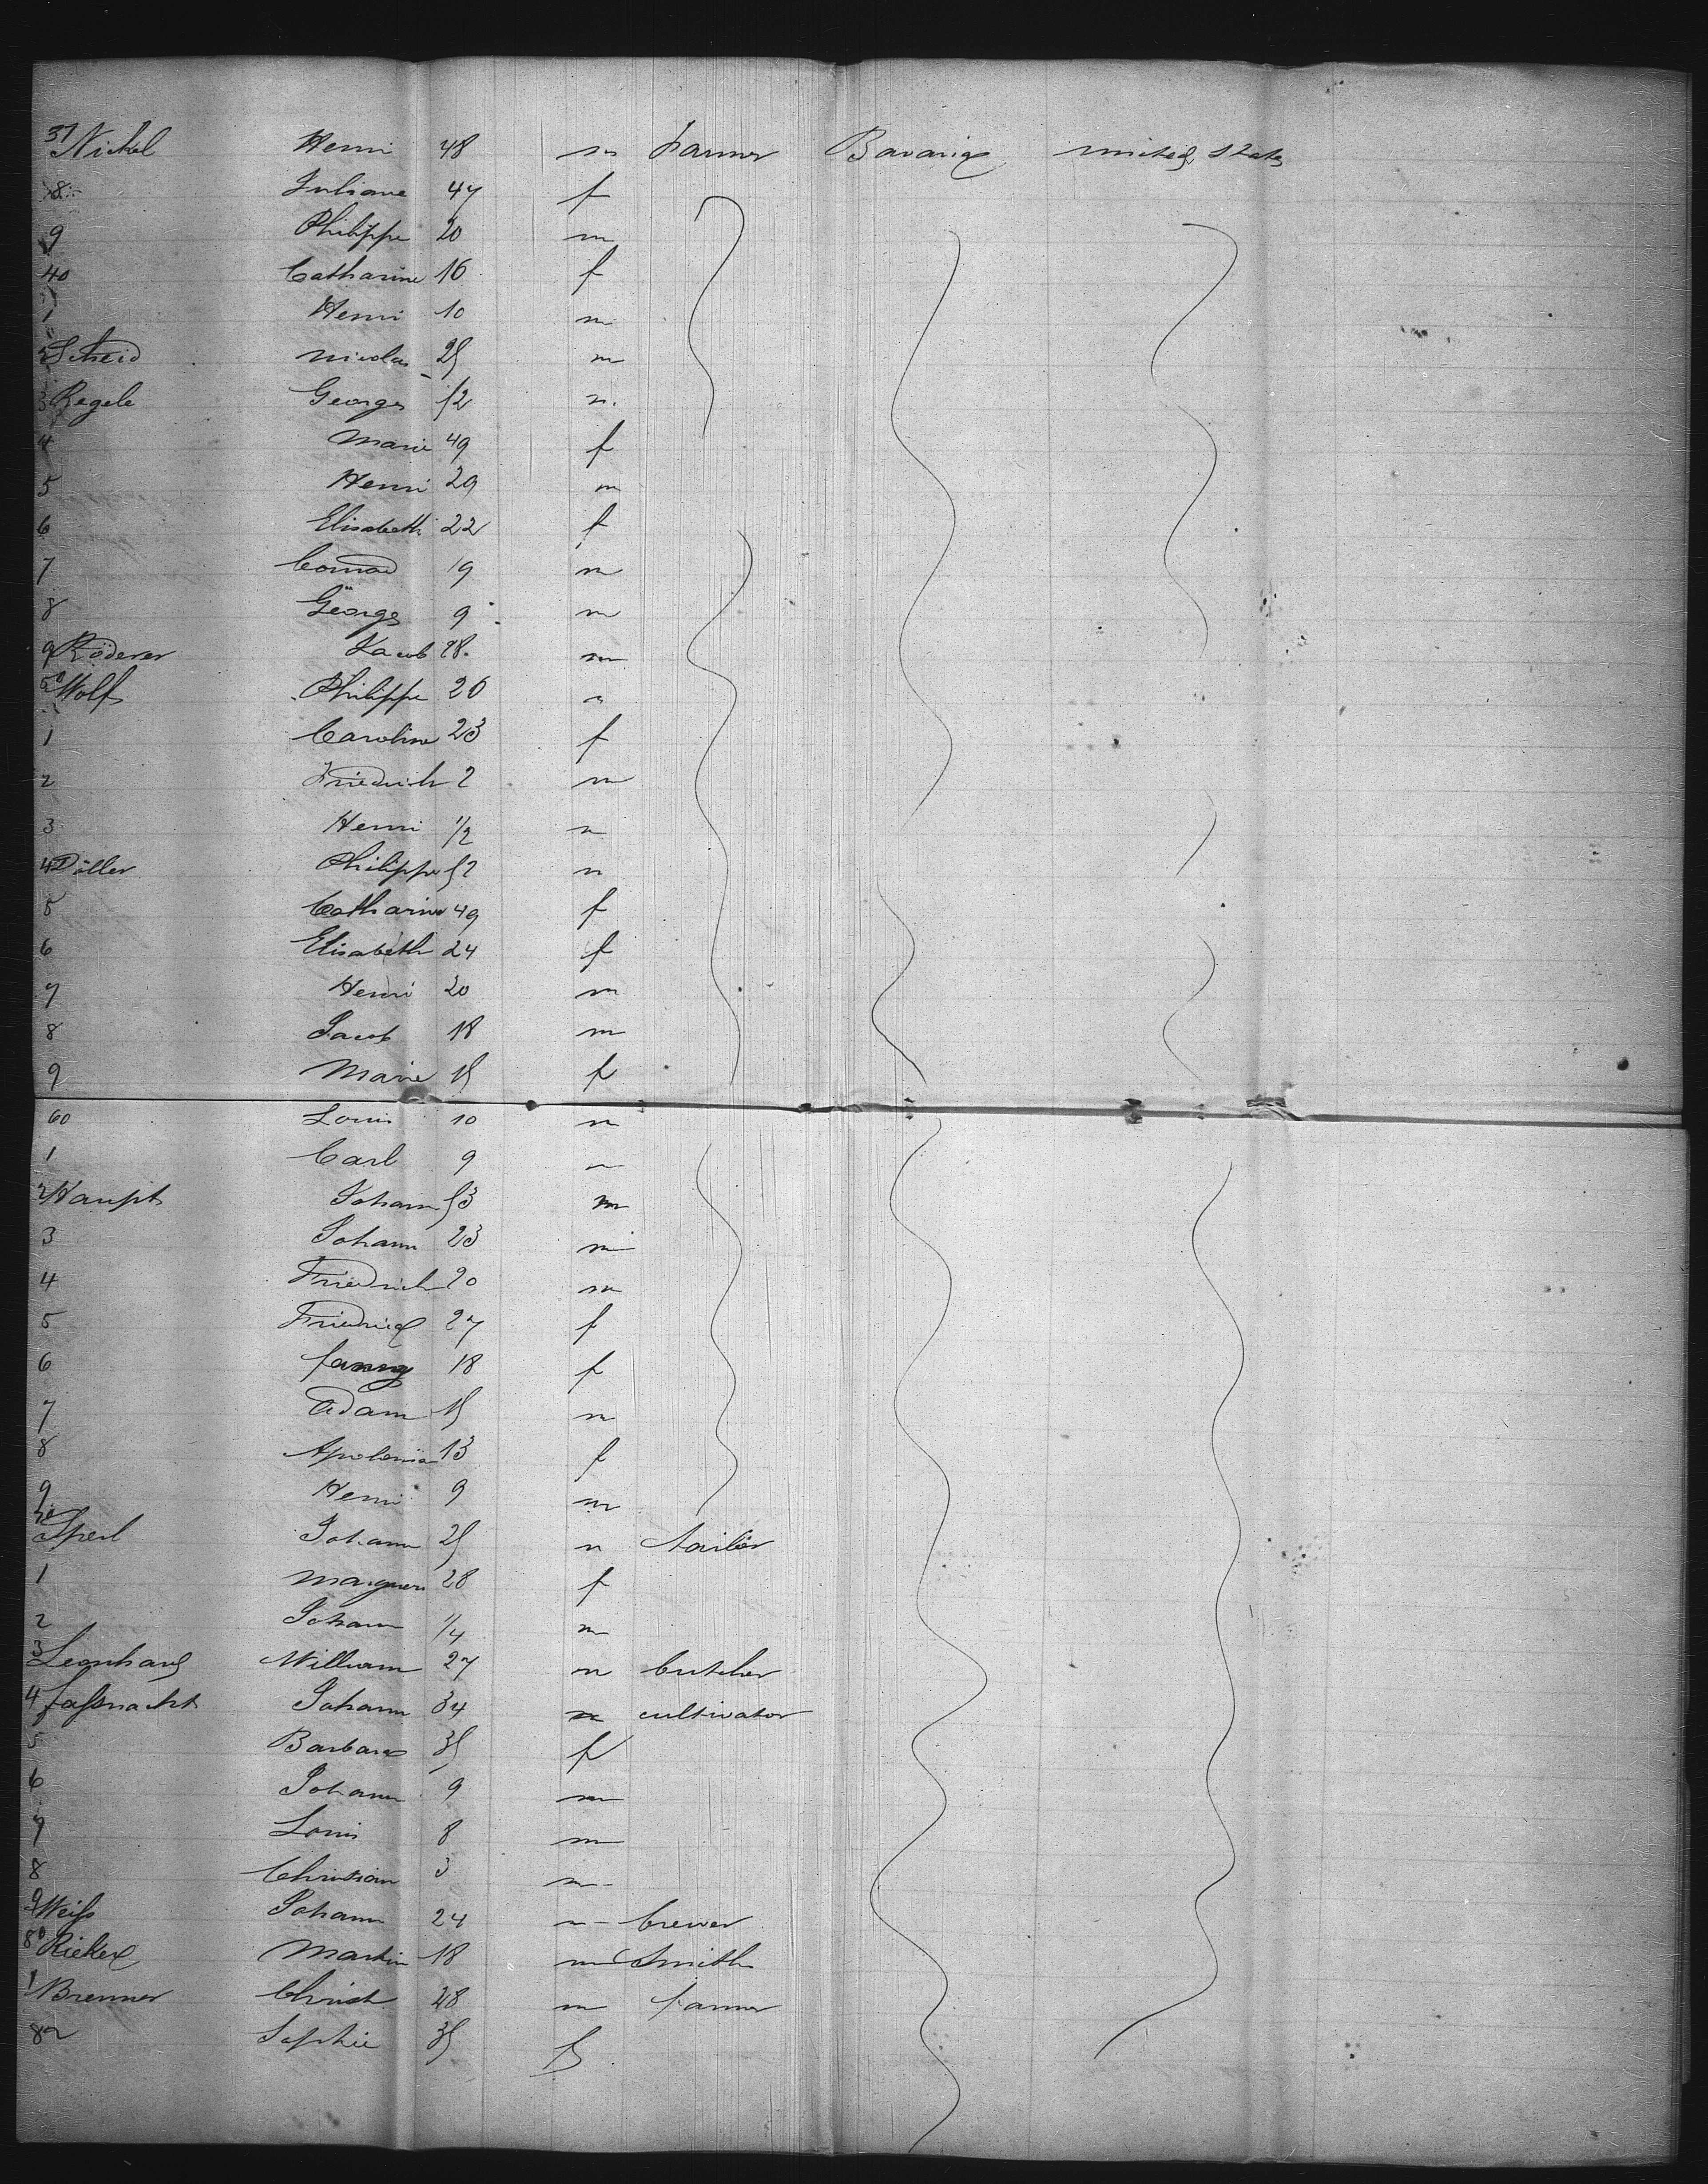 37 Nickel Henri 48 m farmer Bavaria united States
8 Juliane 47 f
9 Philippe 20 m
40 Catharine 16 f
1 Henri 10 m
2 Scheid nicolas 25 m
3 Regele Georges 52 m
4 Marie 49 f
5 Henri 29 m
6 Elisabeth 22 f
7 Conrad 19 m
8 George 9 m
9 Röderer Jacob 28 m
50 Wolf Philippe 26 m
1 Caroline 23 f
2 Friedrich 2 m
3 Henri 1/2 m
4 Döller Philippe 52 m
5 Catharine 49 f
6 Elisabeth 24 f
7 Henri 20 m
8 Jacob 18 m
9 Marie 15 f
60 Louis 10 m
1 Carl 9 m
2 Haupt Johann 53 m
3 Johann 23 m
4 Friedrich 20 m
5 27 f
6 fanny 18 f
7 Adam 15 m
8 Apolonia 13 f
9 Henri 9 m
70 Sperl Johann 25 m tailor
1 28 f
2 Johann 1/4 m
3 Leonhard William 27 m butcher
4 faßnacht Johann 34 m cultivator
5 Barbara 35 f
6 Johann 9 m
7 Louis 8 m
8 Christian 3 m
9 Weiß Johann 24 m brewer
80 Martin 18 m Smith
1 Brenner Christ 28 m farmer
82 Sophie 35 f